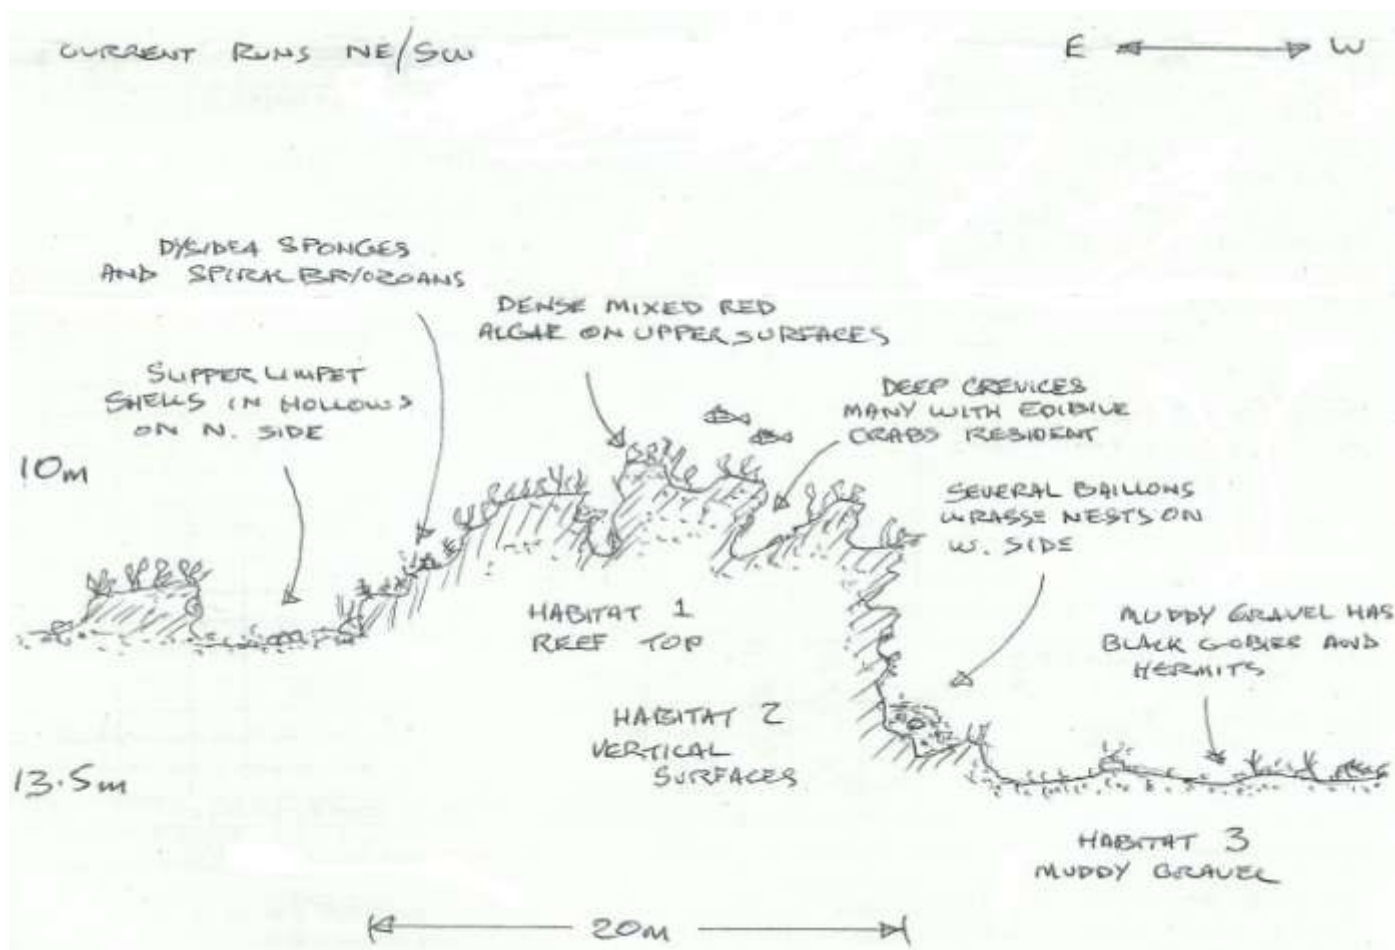 CURRENT RUNS NE/SW
E W
DYSIDEA SPONGES
AND SPIRAL BRYOZOANS
DENSE MIXED RED
ALGAE ON UPPER SURFACES
SLIPPER LIMPET
SHELLS IN HOLLOWS
ON N. SIDE
DEEP CREVICES
MANY WITH EDIBLE
CRABS RESIDENT
10m
SEVERAL BAILLONS
WRASSE NESTS ON
W. SIDE
HABITAT 1
REEF TOP
MUDDY GRAVEL HAS
BLACK GOBIES AND
HERMITS
HABITAT 2
VERTICAL
SURFACES
13.5m
HABITAT 3
MUDDY GRAVEL
20m